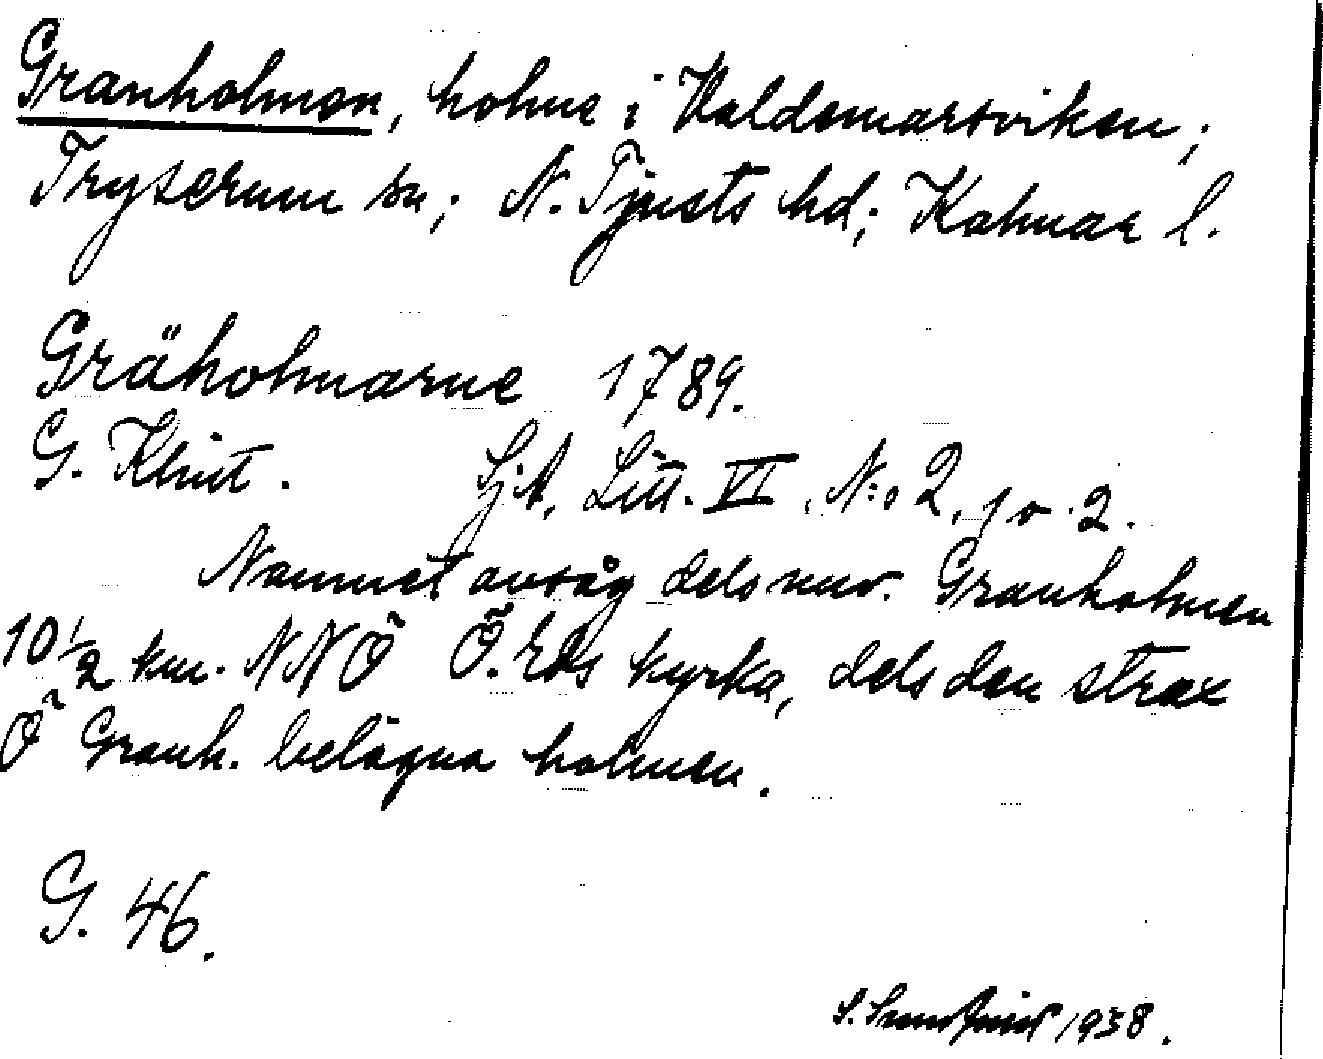 Granholmen, holme i Valdemarsviken;
Tryserum sn; N. Tjusts hd; Kalmar l.
Gräholmarne 1789.
G. Klint. SjA, Litt. VI, N:o 2, 1 o 2.
Namnet avsåg dels nuv. Granholmen
10 1/2 km. NNÖ Ö. Eds kyrka, dels den strax
Ö Granh. belägna holmen.
G. 46.
1938.